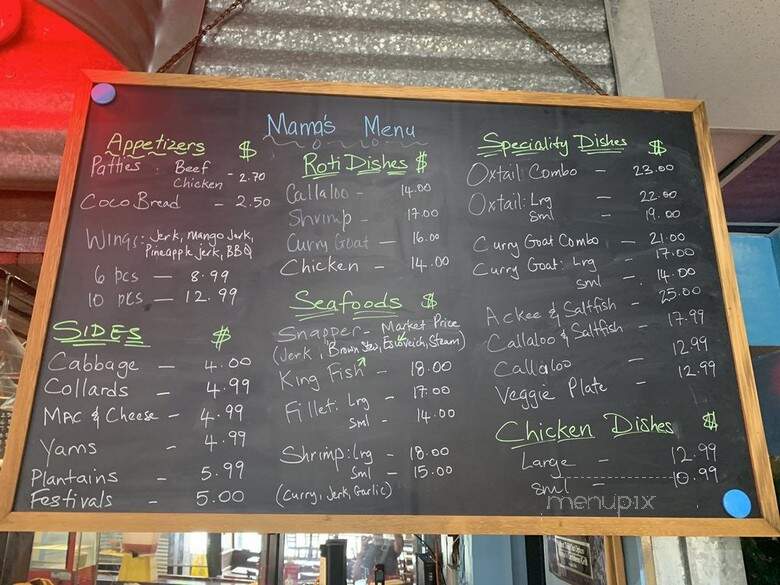 Mama's Menu
Appetizers $
Patties: Beef
Chicken - 2.70
Coco Bread - 2.50
Wings: Jerk, Mango Jerk,
Pineapple jerk, BBQ
6 pcs — 8.99
10 pcs — 12.99
SIDES $
Cabbage — 4.00
Collards - 4.99
MAC & Cheese - 4.99
Yams - 4.99
Plantains - 5.99
Festivals - 5.00
Roti Dishes $
Callaloo - 14.00
Shrimp - 17.00
Curry Goat — 16.00
Chicken - 14.00
Seafoods $
Snapper - Market Price
(Jerk, Brown Stew, Escoveich, Steam)
King Fish - 18.00
Fillet: Lrg - 17.00
Sml - 14.00
Shrimp: Lrg - 18.00
Sml - 15.00
(Curry, Jerk, Garlic)
Speciality Dishes $
Oxtail Combo - 23.00
Oxtail: Lrg - 22.00
Sml - 19.00
Curry Goat Combo - 21.00
Curry Goat: Lrg - 17.00
Sml - 14.00
Ackee & Saltfish - 25.00
Callaloo & Saltfish - 17.99
Callaloo - 12.99
Veggie Plate - 12.99
Chicken Dishes $
Large - 12.99
Sml - 10.99
menupix